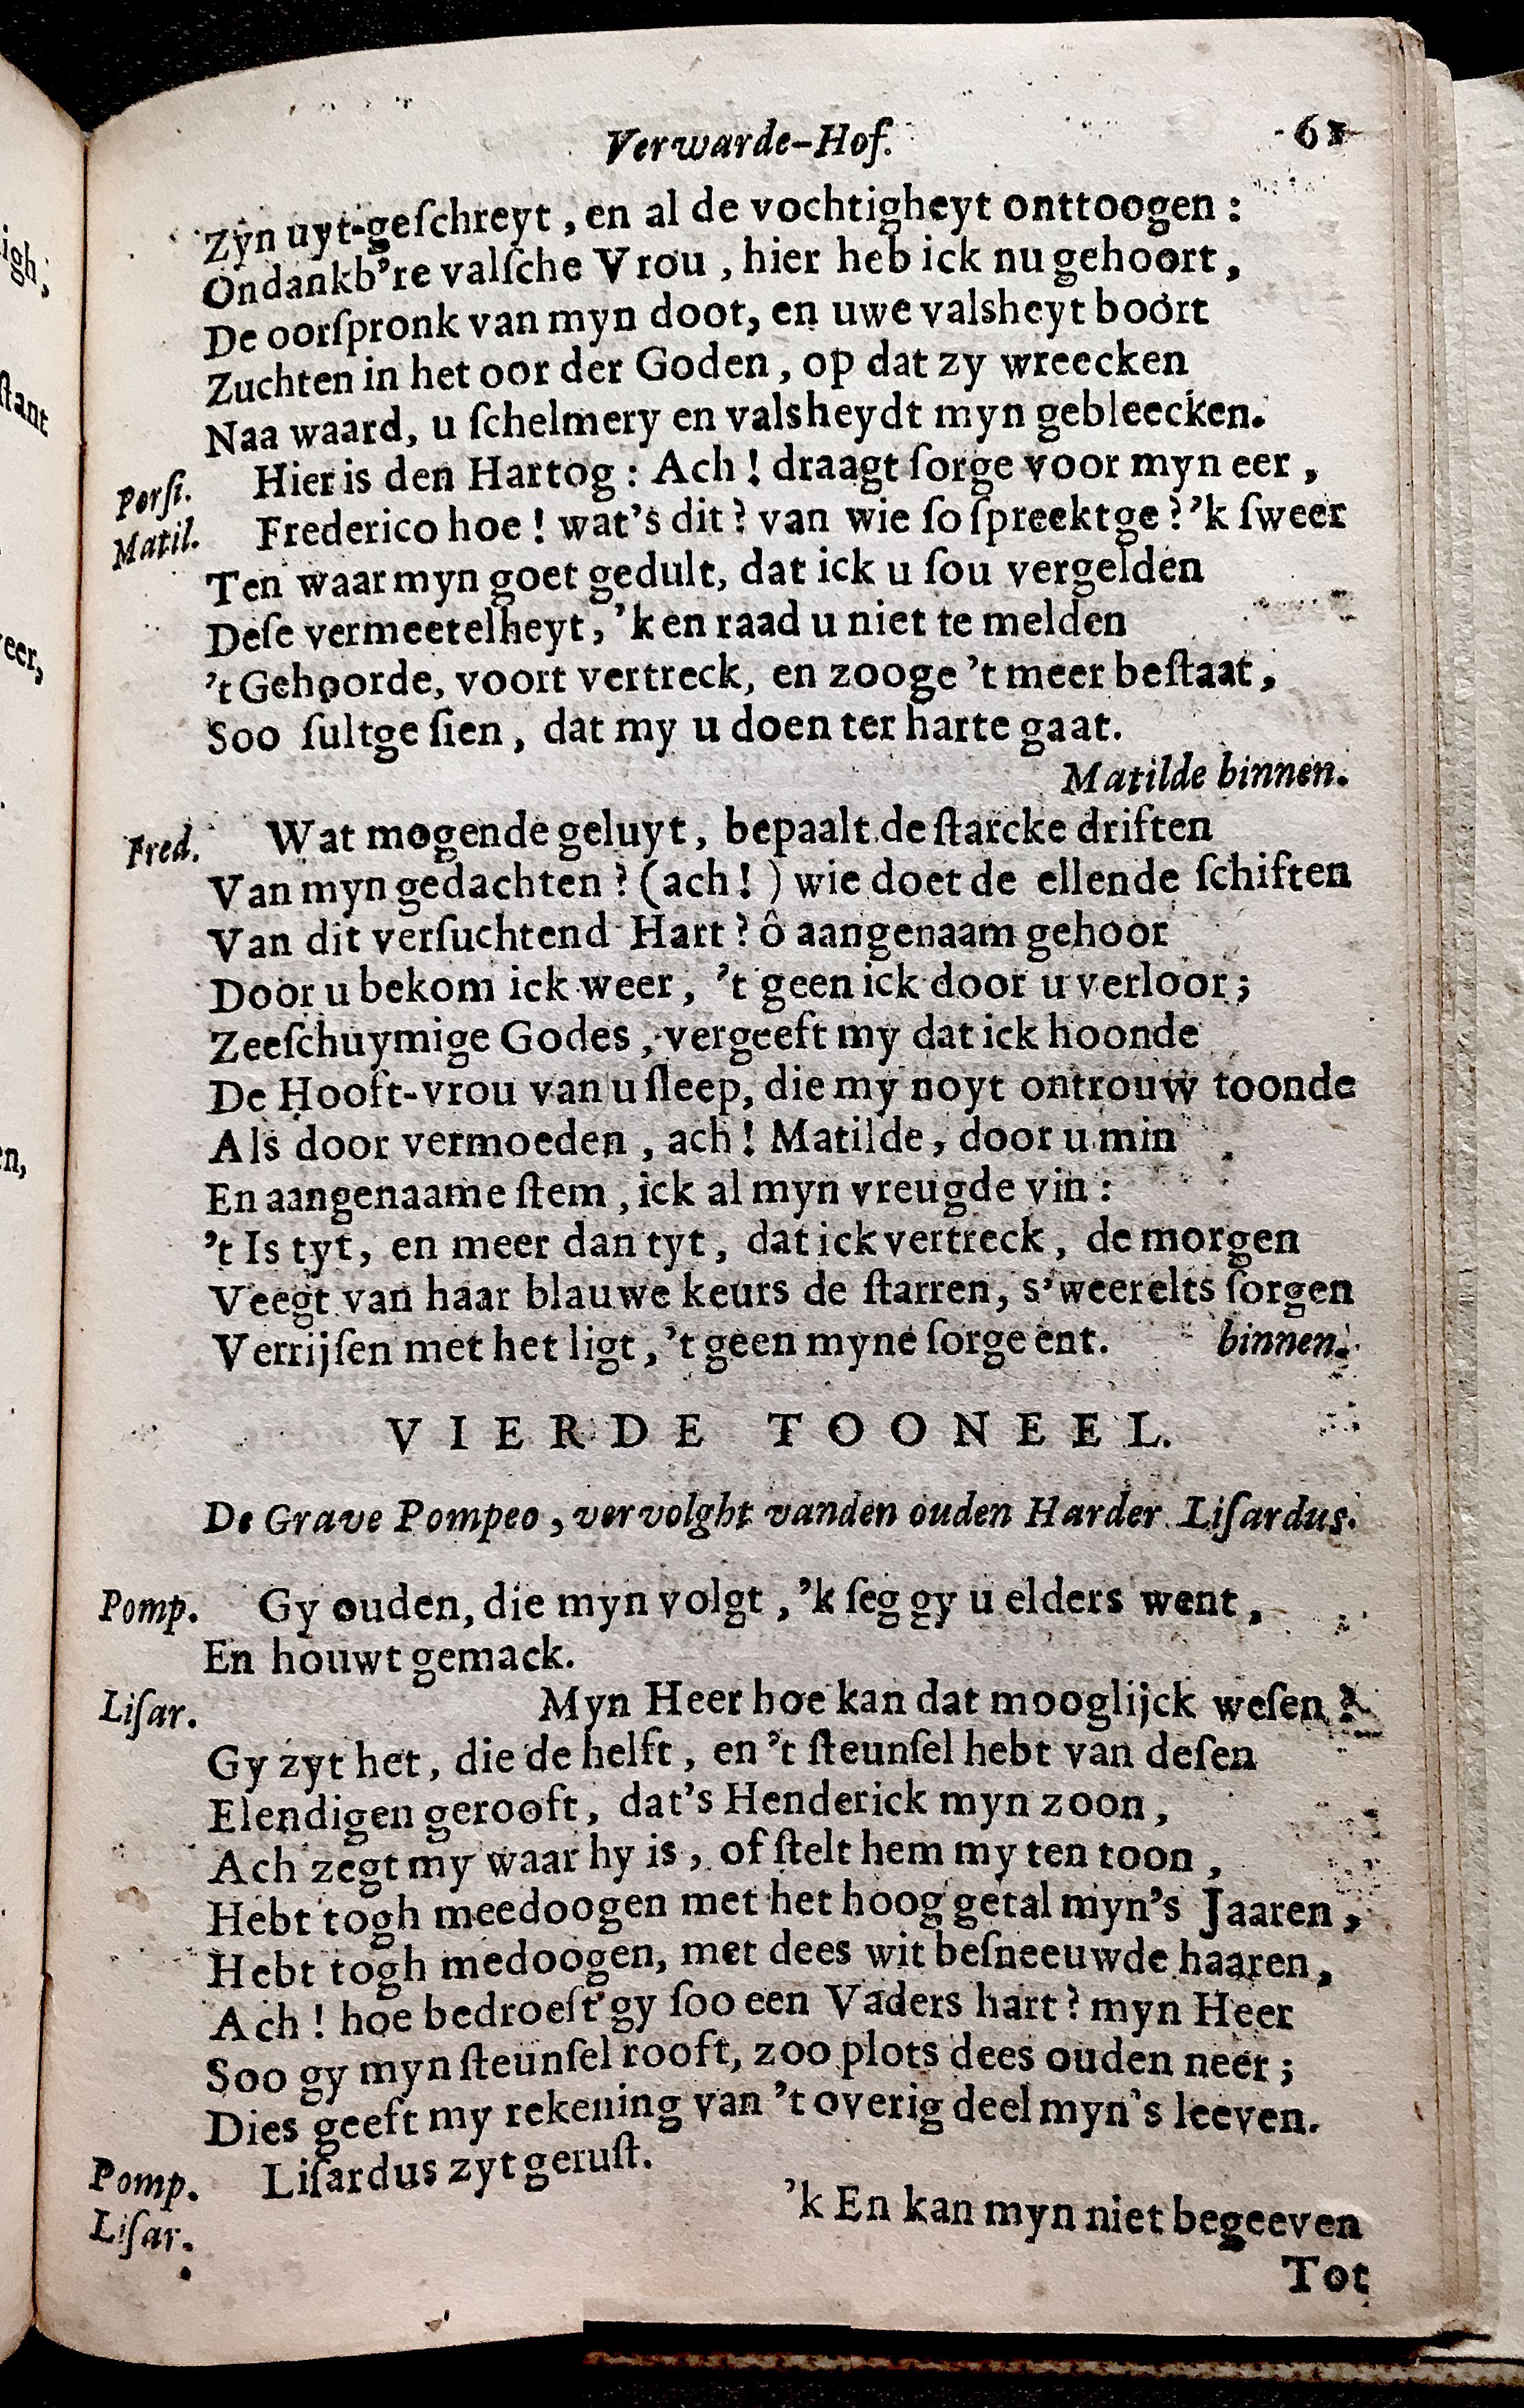 Verwarde-Hof. 61
Zyn uyt-geſchreyt, en al de vochtigheyt onttoogen:
Ondankb're valſche Vrou, hier heb ick nu gehoort,
De oorſpronk van myn doot, en uwe valsheyt boort
Zuchten in het oor der Goden, op dat zy wreecken
Naa waard, u ſchelmery en valsheydt myn gebleecken.
Perſi. Hier is den Hartog: Ach! draagt ſorge voor myn eer,
Matil. Frederico hoe! wat's dit? van wie ſo ſpreektge? 'k ſweer
Ten waar myn goet gedult, dat ick u ſou vergelden
Deſe vermeetelheyt, 'k en raad u niet te melden
't Gehoorde, voort vertreck, en zooge 't meer beſtaat,
Soo ſultge ſien, dat my u doen ter harte gaat.
Matilde binnen.
Fred. Wat mogende geluyt, bepaalt de ſtarcke driften
Van myn gedachten? (ach!) wie doet de ellende ſchiften
Van dit verſuchtend Hart? ô aangenaam gehoor
Door u bekom ick weer, 't geen ick door u verloor;
Zeeſchuymige Godes, vergeeft my dat ick hoonde
De Hooft-vrou van u ſleep, die my noyt ontrouw toonde
Als door vermoeden, ach! Matilde, door u min
En aangenaame ſtem, ick al myn vreugde vin:
't Is tyt, en meer dan tyt, dat ick vertreck, de morgen
Veegt van haar blauwe keurs de ſtarren, s'weerelts ſorgen
Verrijſen met het ligt, 't geen myne ſorge ent. binnen.
VIERDE TOONEEL.
De Grave Pompeo, vervolght vanden ouden Harder Liſardus.
Pomp. Gy ouden, die myn volgt, 'k ſeg gy u elders went,
En houwt gemack.
Liſar. Myn Heer hoe kan dat mooglijck weſen?
Gy zyt het, die de helft, en 't ſteunſel hebt van deſen
Elendigen gerooft, dat's Henderick myn zoon,
Ach zegt my waar hy is, of ſtelt hem my ten toon,
Hebt togh meedoogen met het hoog getal myn's Jaaren,
Hebt togh medoogen, met dees wit beſneeuwde haaren,
Ach! hoe bedroeft gy ſoo een Vaders hart? myn Heer
Soo gy myn ſteunſel rooft, zoo plots dees ouden neer;
Dies geeft my rekening van 't overig deel myn's leeven.
Pomp. Liſardus zyt geruſt.
Liſar. 'k En kan myn niet begeeven
Tot
igh,
ſtant
eer,
en,